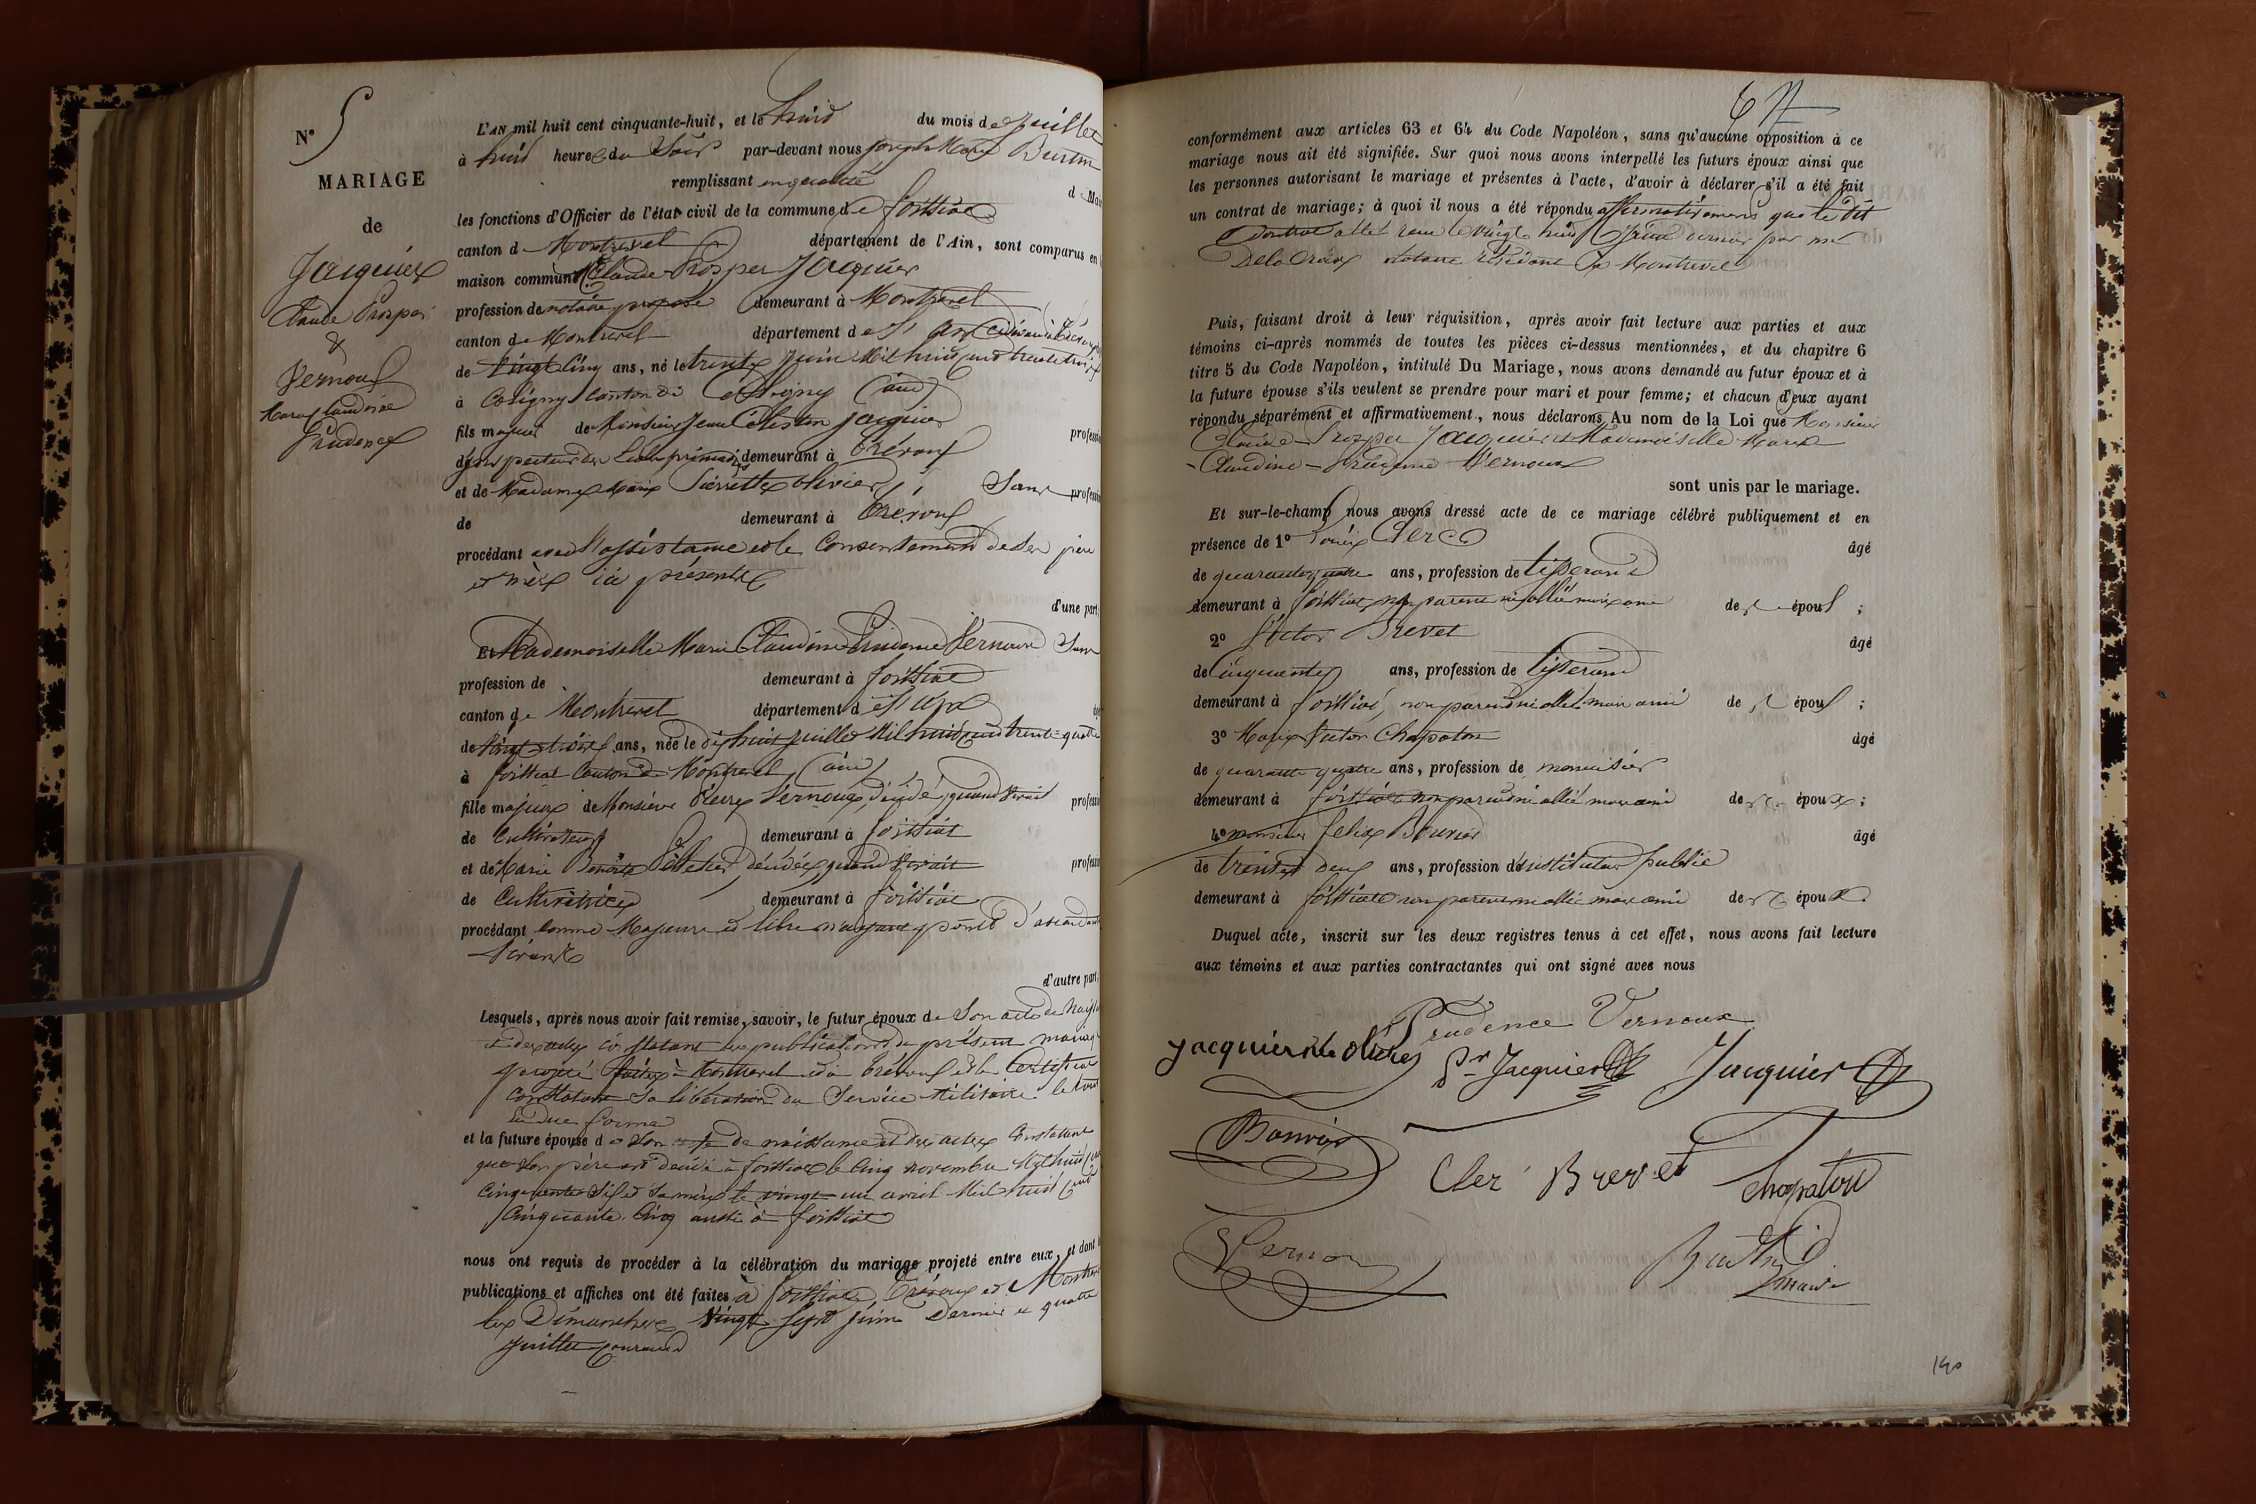 N° 5
MARIAGE
de
Jacquier
Claude Prosper
&
Vernoux
Marie Claudine
Prudence
L'AN mil huit cent cinquante-huit, et le huit du mois de Juillet
à huit heures du Soir par-devant nous Joseph Marie
remplissant en qualité d Mai
les fonctions d'Officier de l'état civil de la commune de foissiat
canton de Montrevel département de l'Ain, sont comparus en
maison commune Claude Prosper Jacquier
profession de notaire demeurant à Montrevel
canton de Montrevel département de l'Ain
de vingt cinq ans, né le trente Juin Mil huit cent trente trois
à Coligny canton de Coligny (ain)
fils majeur de Monsieur Jean Célestin Jacquier profession
d'inspecteur des écoles primaires demeurant à Trévoux
et de Madame Marie Pierrette olivier Sans profession
de demeurant à Trévoux
procédant avec l'assistance et le Consentement de ses père
et mère ici présents
d'une part,
Et Mademoiselle Marie Claudine Prudence Vernoux Sans
profession de demeurant à foissiat
canton de Montrevel département de l'Ain
de vingt trois ans, née le dix huit juillet Mil huit cent trente quatre
à foissiat Canton de Montrevel (ain)
fille majeure de Monsieur Pierre Vernoux, décédé, quand vivait profession
de Cultivateur demeurant à foissiat
et de Marie décédée, quand vivait profession
de Cultivatrice demeurant à foissiat
procédant comme Majeure et libre n'ayant point d'ascendants
vivants
d'autre part,
Lesquels, après nous avoir fait remise, savoir, le futur époux de Son acte de Naiss
et des actes constatant les publications du présent mariage
projeté faites à Montrevel et à Trévoux et le Certificat
Constatant Sa libération du Service Militaire le tout
en due forme
et la future épouse de Son acte de naissance et des actes Constatant
que Son père est décédé à foissiat le Cinq novembre Mil huit cent
Cinquante Six et Sa mère le vingt un avril Mil huit Cent
Cinquante Cinq aussi à foissiat
nous ont requis de procéder à la célébration du mariage projeté entre eux, et dont
publications et affiches ont été faites à foissiat Trévoux et Montrevel
les Dimanches Vingt Sept juin Dernier et quatre
Juillet Courant
conformément aux articles 63 et 64 du Code Napoléon, sans qu'aucune opposition à ce
mariage nous ait été signifiée. Sur quoi nous avons interpellé les futurs époux ainsi que
les personnes autorisant le mariage et présentes à l'acte, d'avoir à déclarer s'il a été fait
un contrat de mariage; à quoi il nous a été répondu affirmativement que le dit
Contrat a été reçu le vingt huit Juin dernier par Me
Delacroix Notaire résidant à Montrevel
Puis, faisant droit à leur réquisition, après avoir fait lecture aux parties et aux
témoins ci-après nommés de toutes les pièces ci-dessus mentionnées, et du chapitre 6
titre 5 du Code Napoléon, intitulé Du Mariage, nous avons demandé au futur époux et à
la future épouse s'ils veulent se prendre pour mari et pour femme; et chacun d'eux ayant
répondu séparément et affirmativement, nous déclarons Au nom de la Loi que Monsieur
Claude Prosper Jacquier et Mademoiselle Marie
Claudine Prudence Vernoux
sont unis par le mariage.
Et sur-le-champ nous avons dressé acte de ce mariage célébré publiquement et en
présence de 1° Clerc âgé
de quarante quatre ans, profession de tisserand
demeurant à foissiat, non parent ni allié mais ami de époux;
2° Victor Brevet âgé
de Cinquante ans, profession de tisserand
demeurant à foissiat, non parent ni allié mais ami de époux;
3° Marie Victor Chapaton âgé
de quarante quatre ans, profession de menuisier
demeurant à foissiat non parent ni allié mais ami de époux;
4° monsieur felix Bouvier âgé
de trente deux ans, profession d'instituteur public
demeurant à foissiat non parent ni allié mais ami de époux
Duquel acte, inscrit sur les deux registres tenus à cet effet, nous avons fait lecture
aux témoins et aux parties contractantes qui ont signé avec nous
Prudence Vernoux
Jacquier née olivier Pr Jacquier Jacquier
Bouvier
Clerc Brevet Chapaton
Vernoux
maire
140